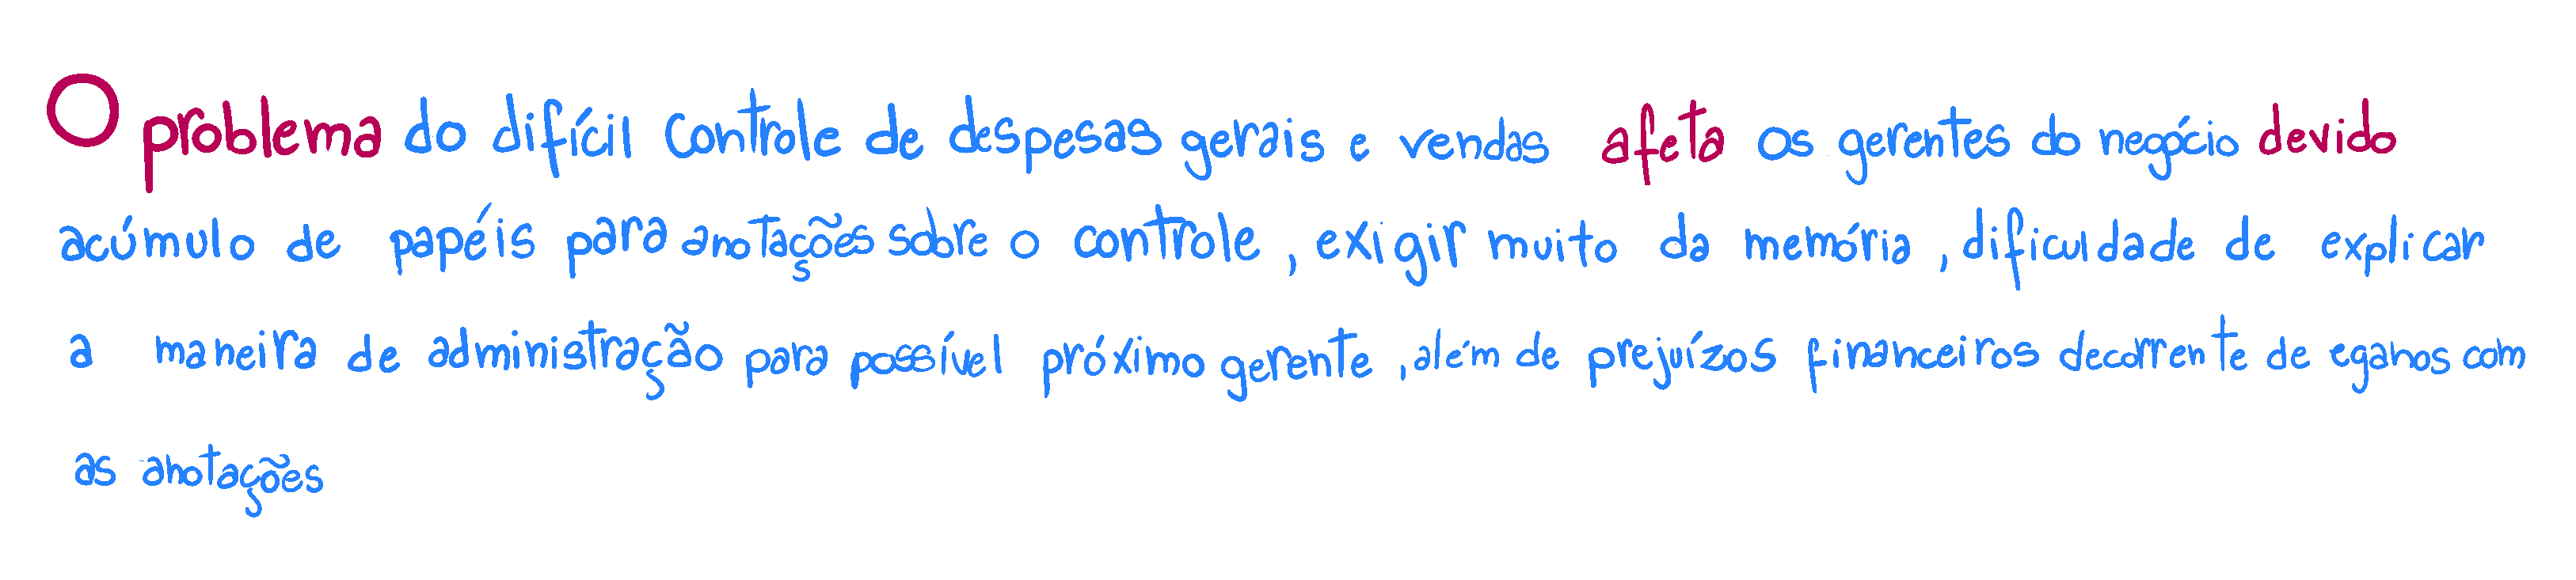 O problema do difícil controle de despesas gerais e vendas afeta os gerentes do negócio devido
acúmulo de papéis para anotações sobre o controle, exigir muito da memória, dificuldade de explicar
a maneira de administração para possível próximo gerente, além de prejuízos financeiros decorrente de eganos com
as anotações